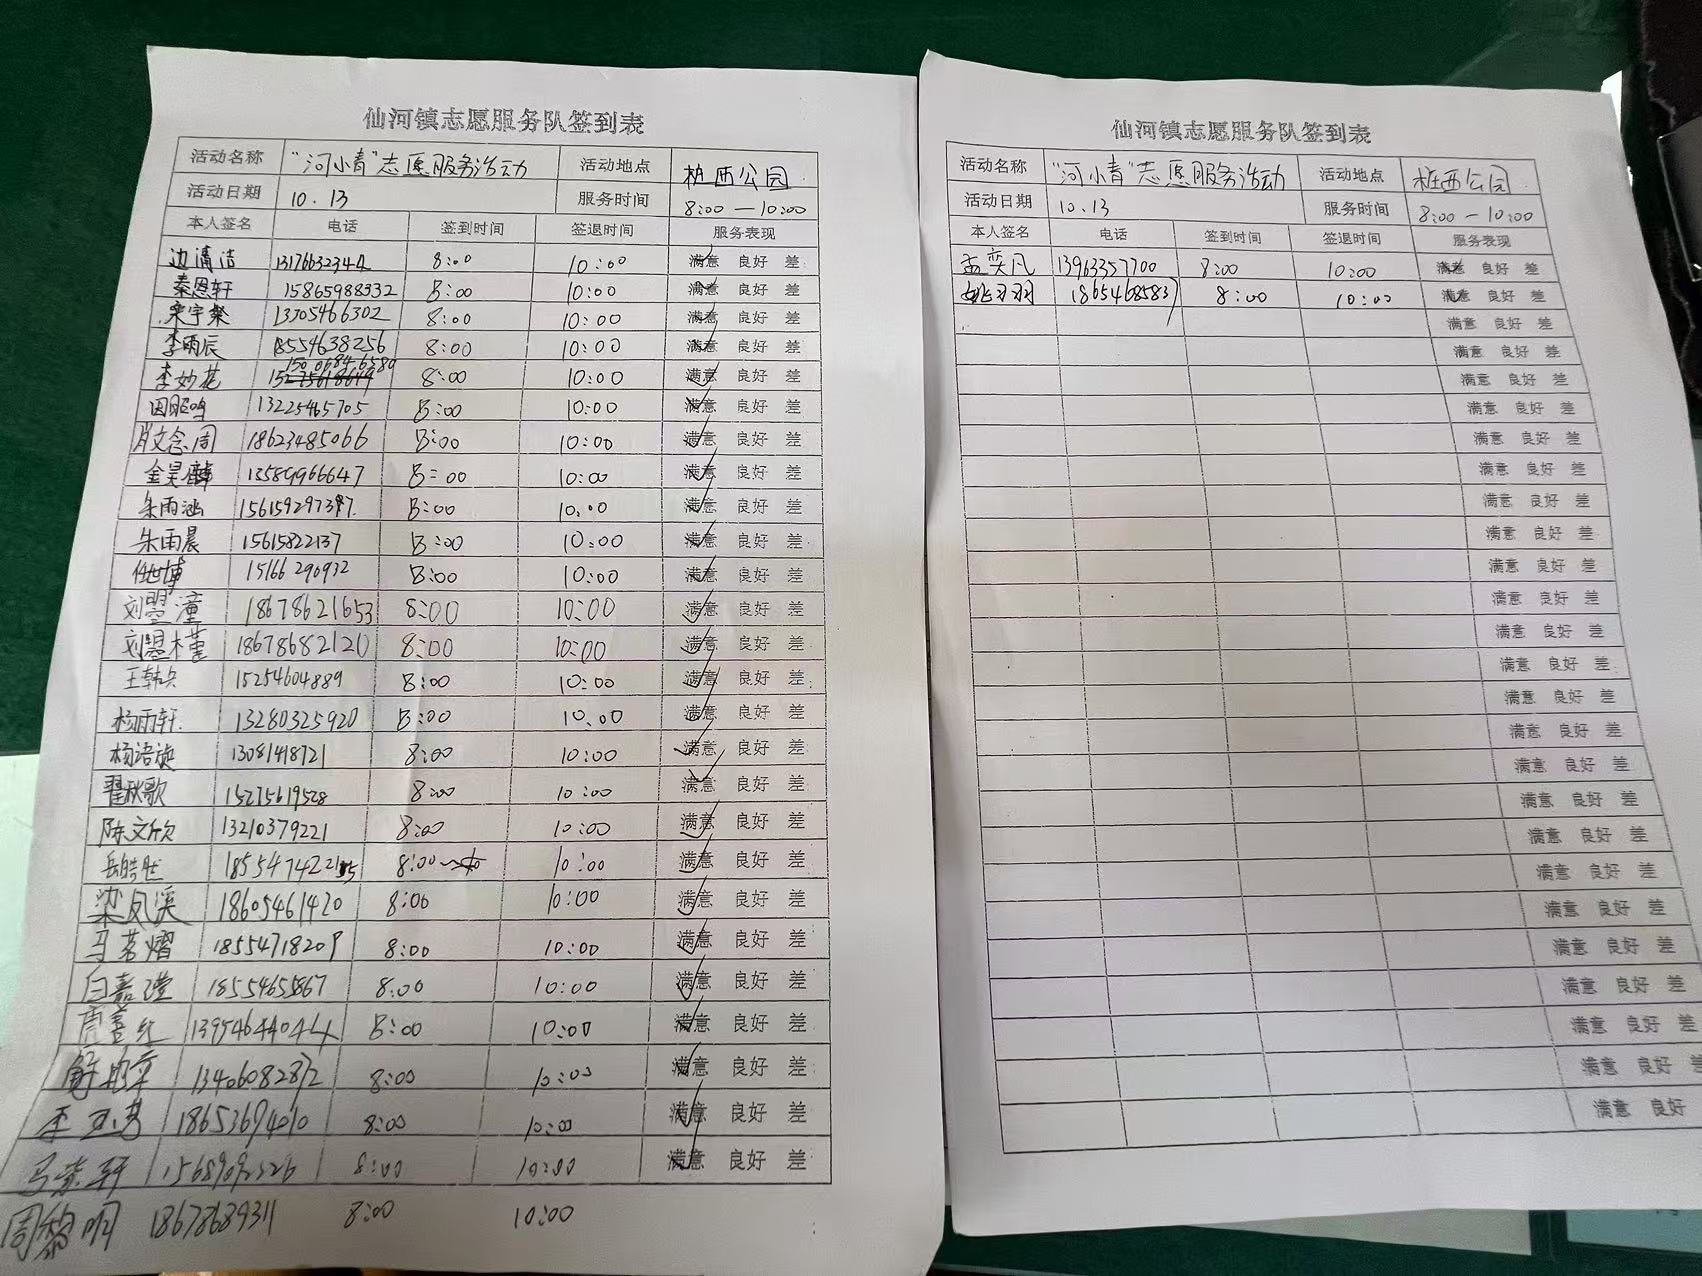 仙河镇志愿服务队签到表
活动名称 "河小青"志愿服务活动 活动地点 桩西公园
活动日期 10.13 服务时间 8:00—10:00
本人签名 电话 签到时间 签退时间 服务表现
边清洁 13176632344 8:00 10:00 满意 良好 差
秦恩轩 15865988332 8:00 10:00 满意 良好 差
宋宇粲 13305466302 8:00 10:00 满意 良好 差
李雨辰 18554638256 8:00 10:00 满意 良好 差
李妙花 15006846580 8:00 10:00 满意 良好 差
13225465705 8:00 10:00 满意 良好 差
肖文念周 18623485066 8:00 10:00 满意 良好 差
金昊 13589966647 8:00 10:00 满意 良好 差
朱雨涵 8:00 10:00 满意 良好 差
朱雨晨 15615822137 8:00 10:00 满意 良好 差
任世博 15166290932 8:00 10:00 满意 良好 差
刘曌潼 18678621653 8:00 10:00 满意 良好 差
刘曌槿 18678682120 8:00 10:00 满意 良好 差
王韩兵 15254604889 8:00 10:00 满意 良好 差
杨雨轩 13280325920 8:00 10:00 满意 良好 差
杨语旋 13081418721 8:00 10:00 满意 良好 差
翟秋歌 15275619528 8:00 10:00 满意 良好 差
陈文欣 13210379221 8:00 10:00 满意 良好 差
岳皓 8:00 10:00 满意 良好 差
梁凤溪 18605461420 8:00 10:00 满意 良好 差
马茗熠 18554718209 8:00 10:00 满意 良好 差
白嘉滢 18554655867 8:00 10:00 满意 良好 差
13954644044 8:00 10:00 满意 良好 差
解 13406082872 8:00 10:00 满意 良好 差
18653694010 8:00 10:00 满意 良好 差
马 轩 8:00 10:00 满意 良好 差
周黎明 18678689311 8:00 10:00
仙河镇志愿服务队签到表
活动名称 "河小青"志愿服务活动 活动地点 桩西公园
活动日期 10.13 服务时间 8:00—10:00
本人签名 电话 签到时间 签退时间 服务表现
孟奕凡 13963357700 8:00 10:00 满意 良好 差
姚羽羽 18654685837 8:00 10:00 满意 良好 差
满意 良好 差
满意 良好 差
满意 良好 差
满意 良好 差
满意 良好 差
满意 良好 差
满意 良好 差
满意 良好 差
满意 良好 差
满意 良好 差
满意 良好 差
满意 良好 差
满意 良好 差
满意 良好 差
满意 良好 差
满意 良好 差
满意 良好 差
满意 良好 差
满意 良好 差
满意 良好 差
满意 良好 差
满意 良好 差
满意 良好 差
满意 良好